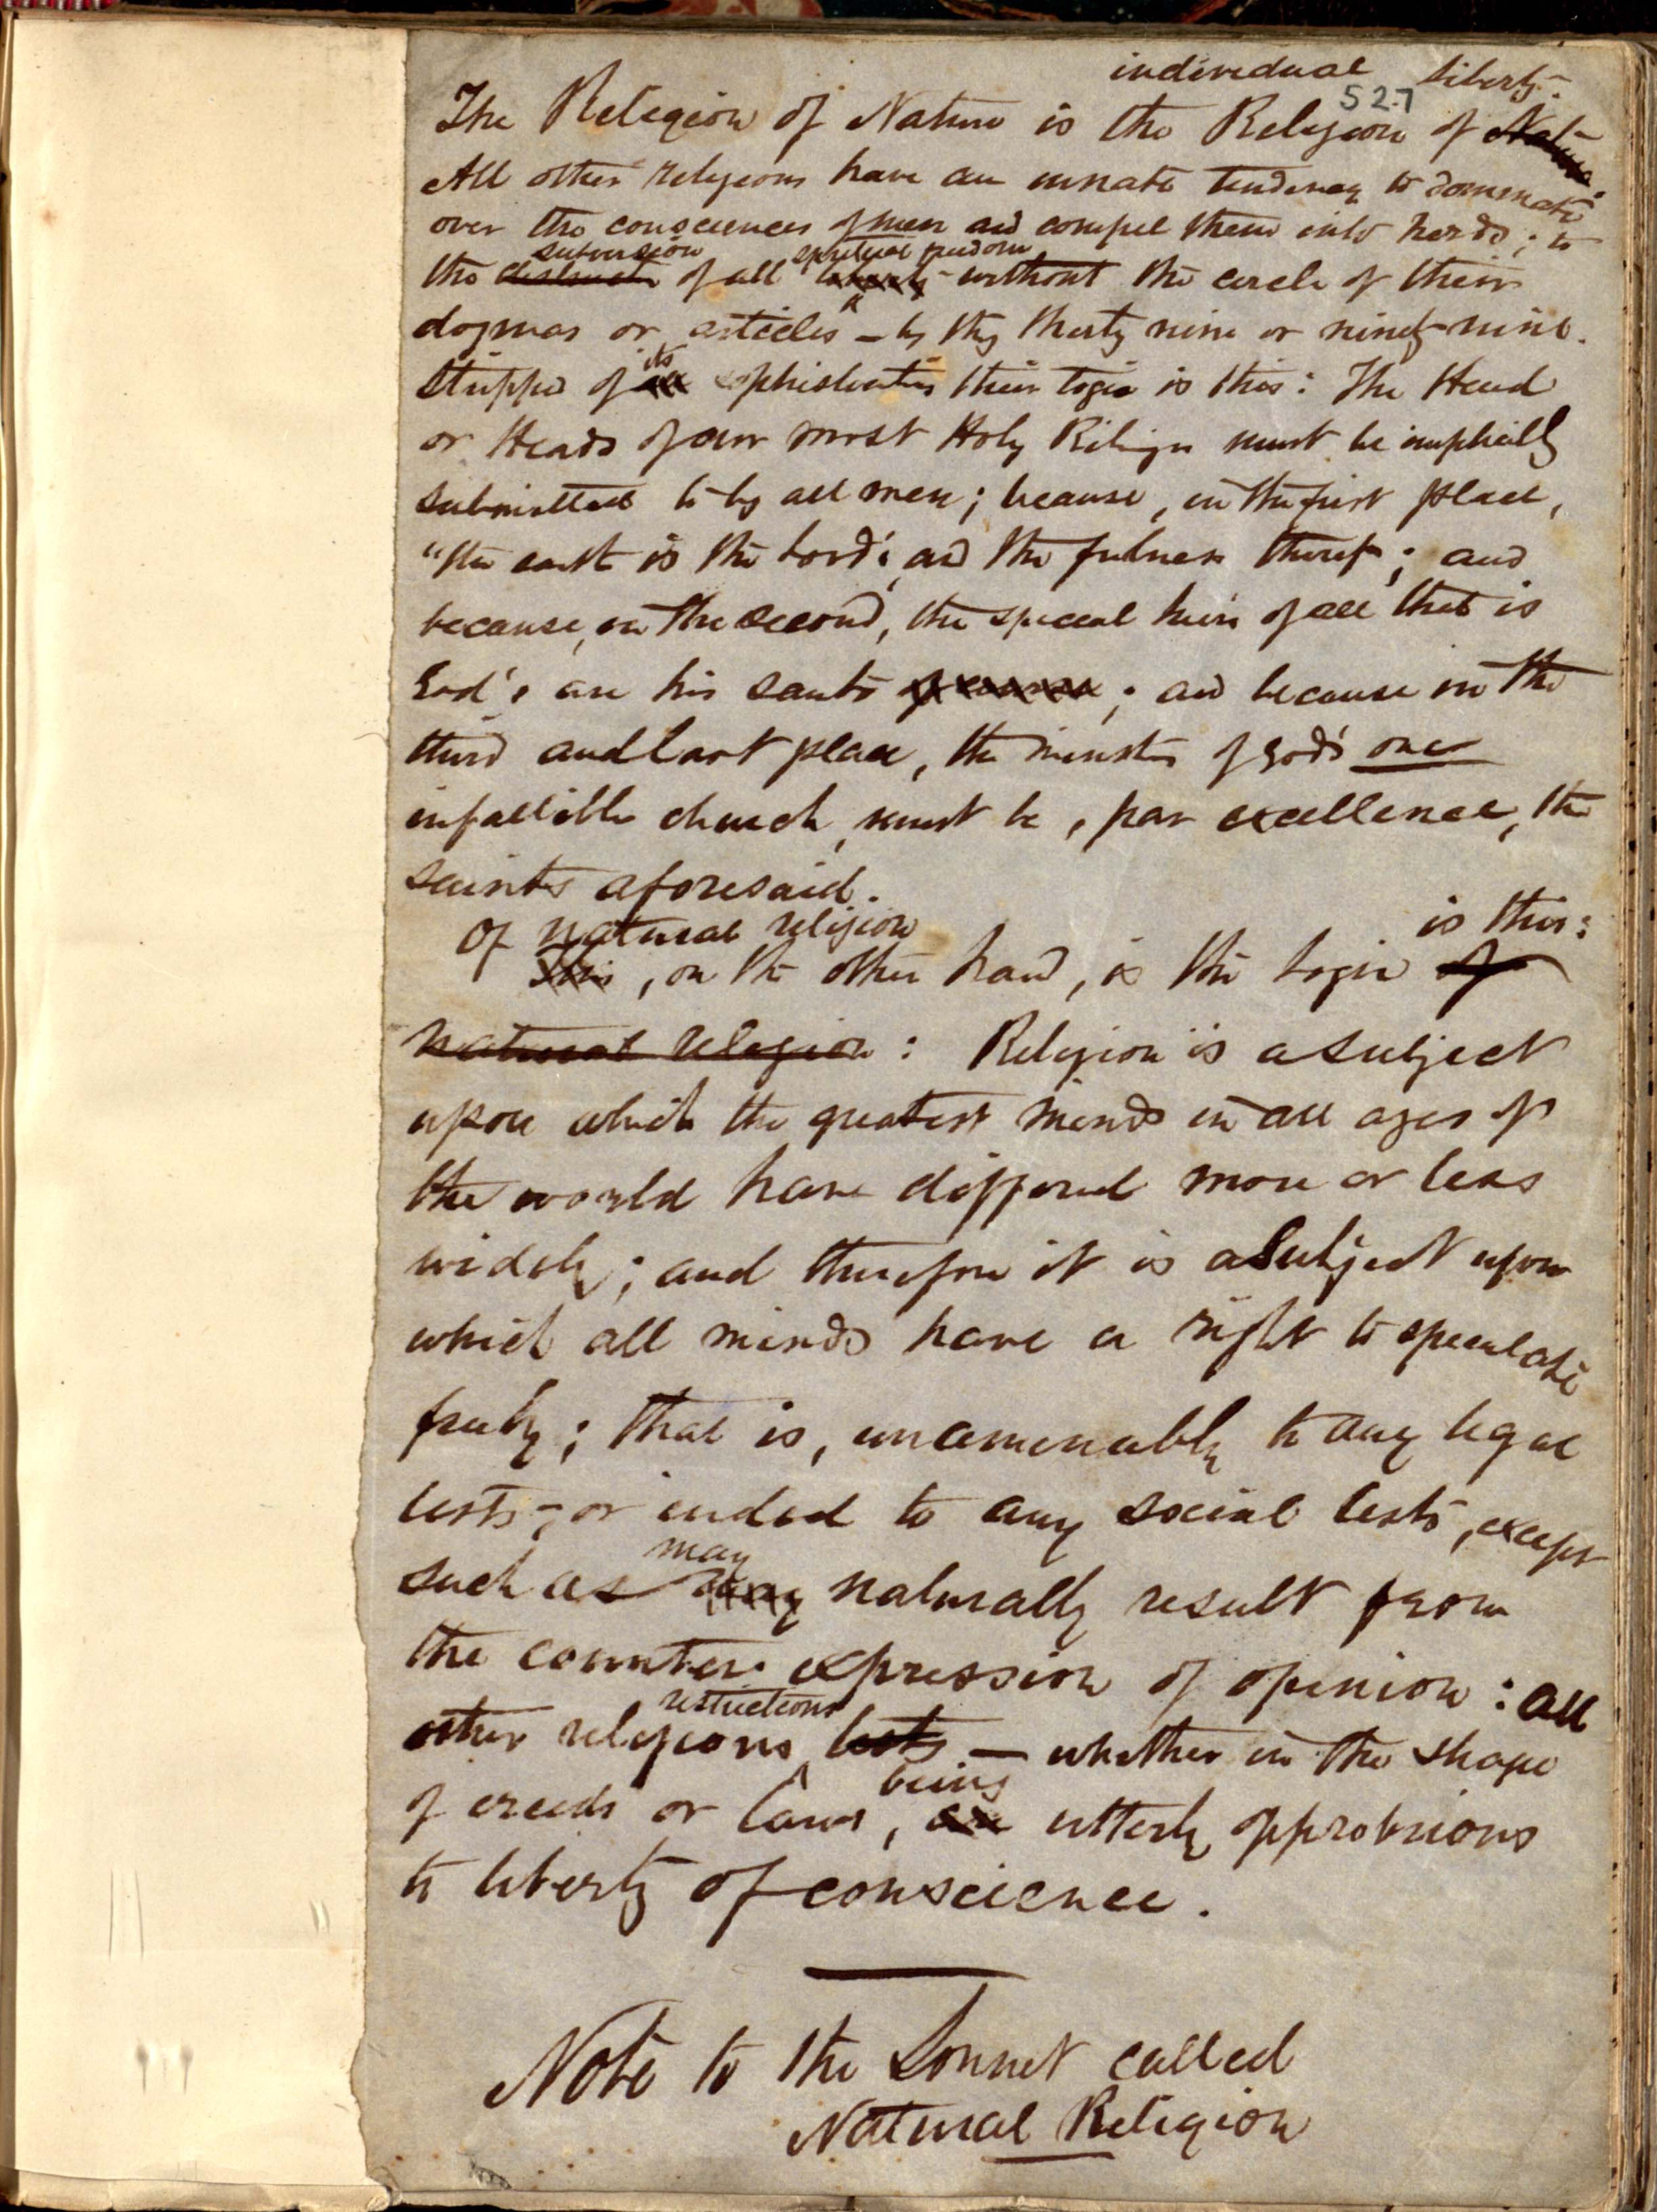 individual liberty.
527
The Religion of Nature is the Religion of Nature.
All other religions have an innate tendency to dominate
over the consciences of men and compel them into herds; to
subversion spiritual freedom
the of all without the circle of their
dogmas or articles — be they thirty nine or ninety-nine.
its
Stripped of all sophistication their logic is this: The Head
or Heads of our most Holy Religion must be implicitly
submitted to by all men; because, in the first place,
"the earth is the Lord's, and the fulness thereof; and
because, in the second, the special heirs of all that is
God's are his saints of course; and because in the
third and last place, the ministers of God's one
infallible church, must be, par excellence, the
saints aforesaid.
Of natural religion is this:
This, on the other hand, is the logic of
natural religion: Religion is a subject
upon which the greatest minds in all ages of
the world have differed more or less
widely; and therefore it is a subject upon
which all minds have a right to speculate
freely; that is, unamenably to any legal
tests, or indeed to any social tests, except
may
such as may naturally result from
the counter expression of opinion: all
restrictions
other religious tests — whether in the shape
being
of creeds or laws, are utterly opprobrious
to liberty of conscience.
Note to the Sonnet called
Natural Religion